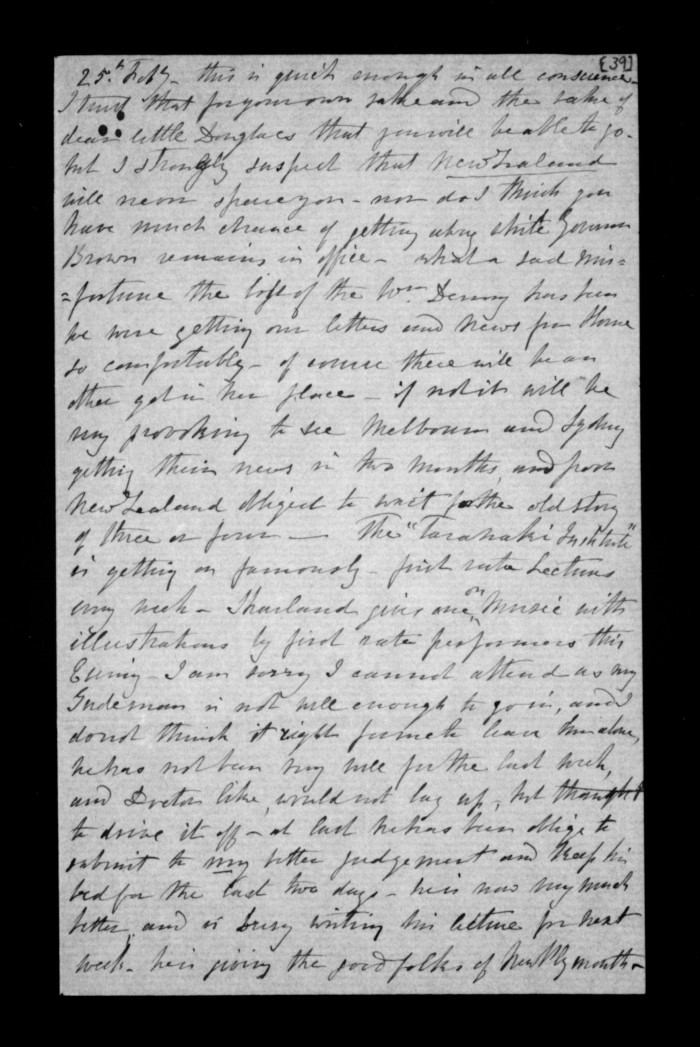 [39]
25.th Feby - this is quick enough in all conscience -
I trust that for your own sake and the sake of
dear little Douglas that you will be able to go -
but I strongly suspect that New Zealand
will never spare you - nor do I think you
have much chance of getting away while Governor
Brown remains in office - what a sad mis=
=fortune the loss of the Wm. Denny has been
we were getting our letters and news from Home
so comfortably - of course there will be an
other got in her place - if not it will be
very provoking to see Melbourne and Sydney
getting their news in two months, and poor
New Zealand obliged to wait for the old story
of three or four - The "Taranaki Institute"
is getting on famously - first rate Lectures
every week - Kharland gives one on Music with
illustrations by first rate performers this
Evening - I am sorry I cannot attend as my
Gudeman is not well enough to go in, and I
do not think it right for me to leave him alone,
he has not been very well for the last week,
and Doctor like, would not lay up, but thought
to drive it off - at last he has been oblige to
submit to my better judgement and keep his
bed for the last two days - he is now very much
better, and is busy writing his lecture for next
week - he is giving the good folks of New Plymouth -